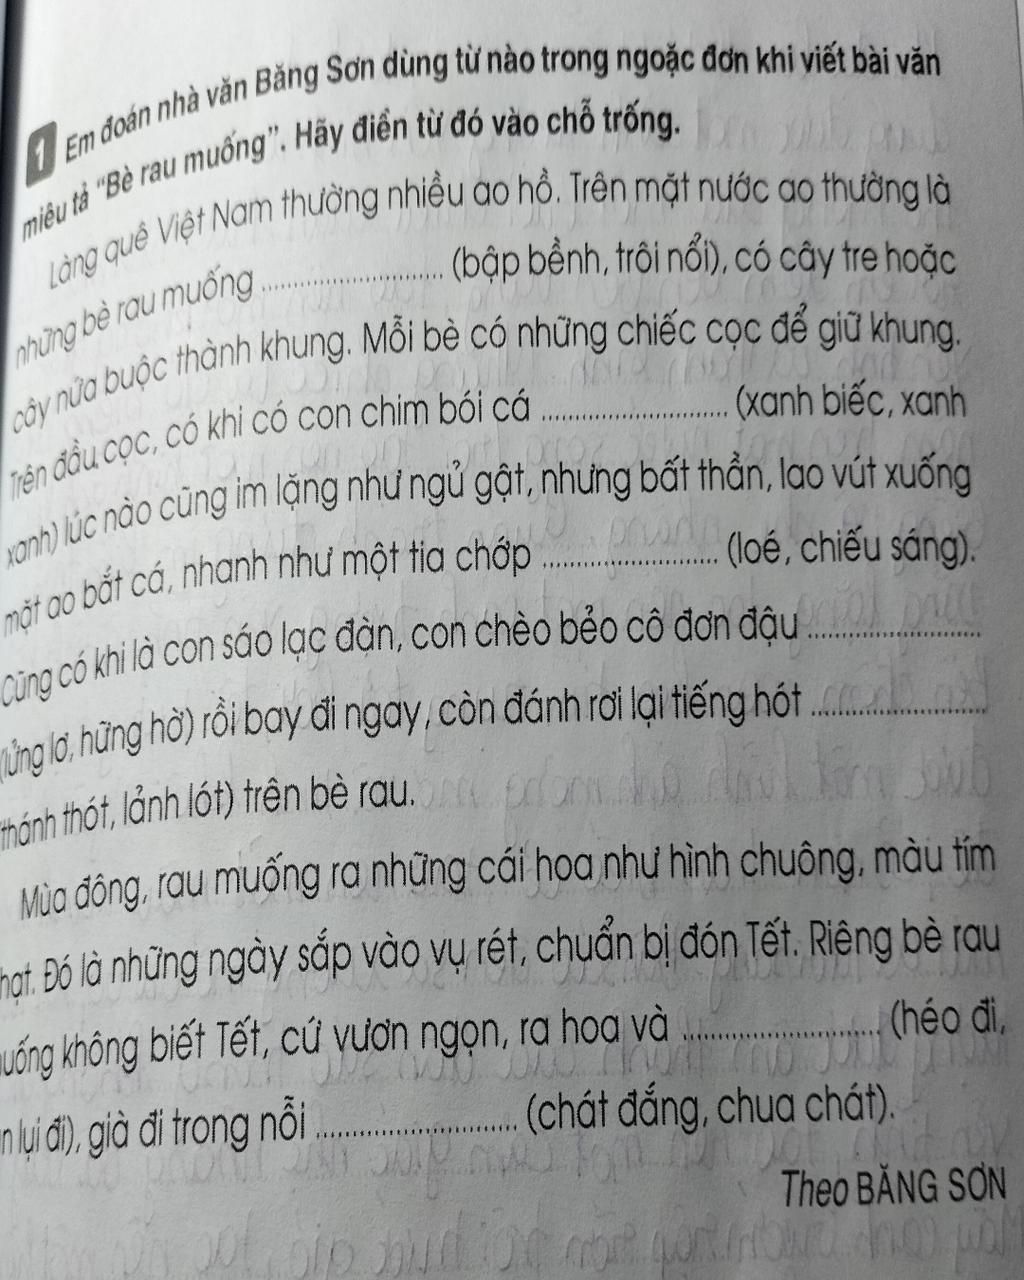 1 Em đoán nhà văn Băng Sơn dùng từ nào trong ngoặc đơn khi viết bài văn
miêu tả "Bè rau muống". Hãy điền từ đó vào chỗ trống.
Làng quê Việt Nam thường nhiều ao hồ. Trên mặt nước ao thường là
những bè rau muống .......................... (bập bềnh, trôi nổi), có cây tre hoặc
cây nứa buộc thành khung. Mỗi bè có những chiếc cọc để giữ khung.
Trên đầu cọc, có khi có con chim bói cá .......................... (xanh biếc, xanh
xanh) lúc nào cũng im lặng như ngủ gật, nhưng bất thần, lao vút xuống
mặt ao bắt cá, nhanh như một tia chớp .......................... (loé, chiếu sáng).
Cũng có khi là con sáo lạc đàn, con chèo bẻo cô đơn đậu ..........................
(lửng lơ, hững hờ) rồi bay đi ngay, còn đánh rơi lại tiếng hót ..........................
thánh thót, lảnh lót) trên bè rau.
Mùa đông, rau muống ra những cái hoa như hình chuông, màu tím
hạt. Đó là những ngày sắp vào vụ rét, chuẩn bị đón Tết. Riêng bè rau
uống không biết Tết, cứ vươn ngọn, ra hoa và .......................... (héo đi,
n lụi đi), già đi trong nỗi .......................... (chát đắng, chua chát).
Theo BĂNG SƠN